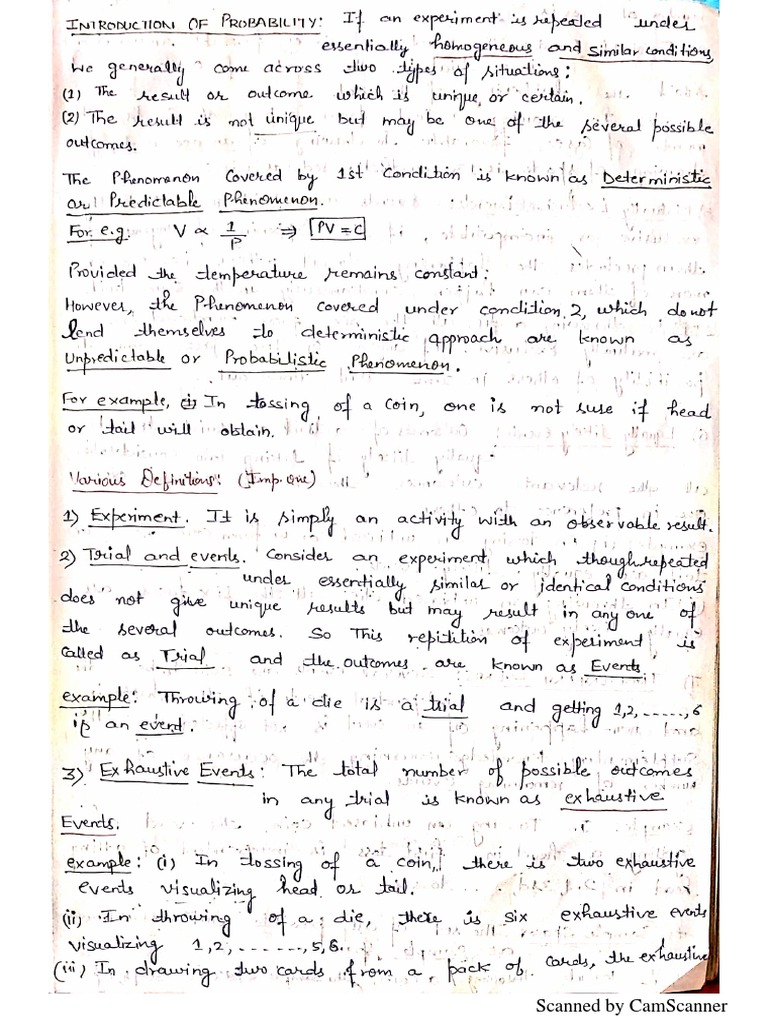 INTRODUCTION OF PROBABILITY: If an experiment is repeated under
essentially homogeneous and similar conditions,
we generally come across two types of situations:
(1) The result or outcome which is unique or certain.
(2) The result is not unique but may be one of the several possible
outcomes.
The Phenomenon Covered by 1st Condition is known as Deterministic
or Predictable Phenomenon.
For e.g: V ∝ 1/P ⇒ PV = C
Provided the temperature remains constant:
However, the Phenomenon covered under condition 2, which do not
lend themselves to deterministic approach are known as
Unpredictable or Probabilistic Phenomenon.
For example, (i) In tossing of a coin, one is not suse if head
or tail will obtain.
Various Definitions: (Imp. one)
1) Experiment. It is simply an activity with an observable result.
2) Trial and events. Consider an experiment which though repeated
under essentially similar or identical conditions
does not give unique results but may result in any one of
the several outcomes. So This repitition of experiment is
Called as Trial and the outcomes are known as Events
example: Throwing of a die is a trial and getting 1,2, ......,6
is an event.
3) Exhaustive Events: The total number of possible outcomes
in any trial is known as exhaustive
Events.
example: (i) In tossing of a coin, there is two exhaustive
events visualizing head or tail.
(ii) In throwing of a die, there is six exhaustive events
visualizing 1,2, .......,5,6.
(iii) In drawing two cards from a pack of cards, the exhaustive
Scanned by CamScanner